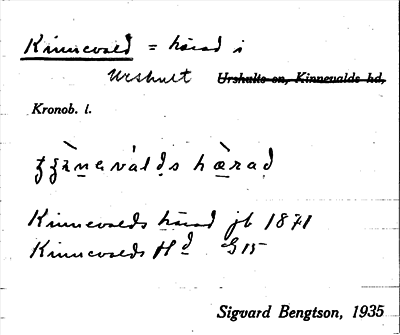 Kinnevald = härad i
Urshult Urshults sn, Kinnevalds hd,
Kronob. l.
härad
Kinnevalds härad jb 1871
Kinnevalds Hd G15
Sigvard Bengtson, 1935